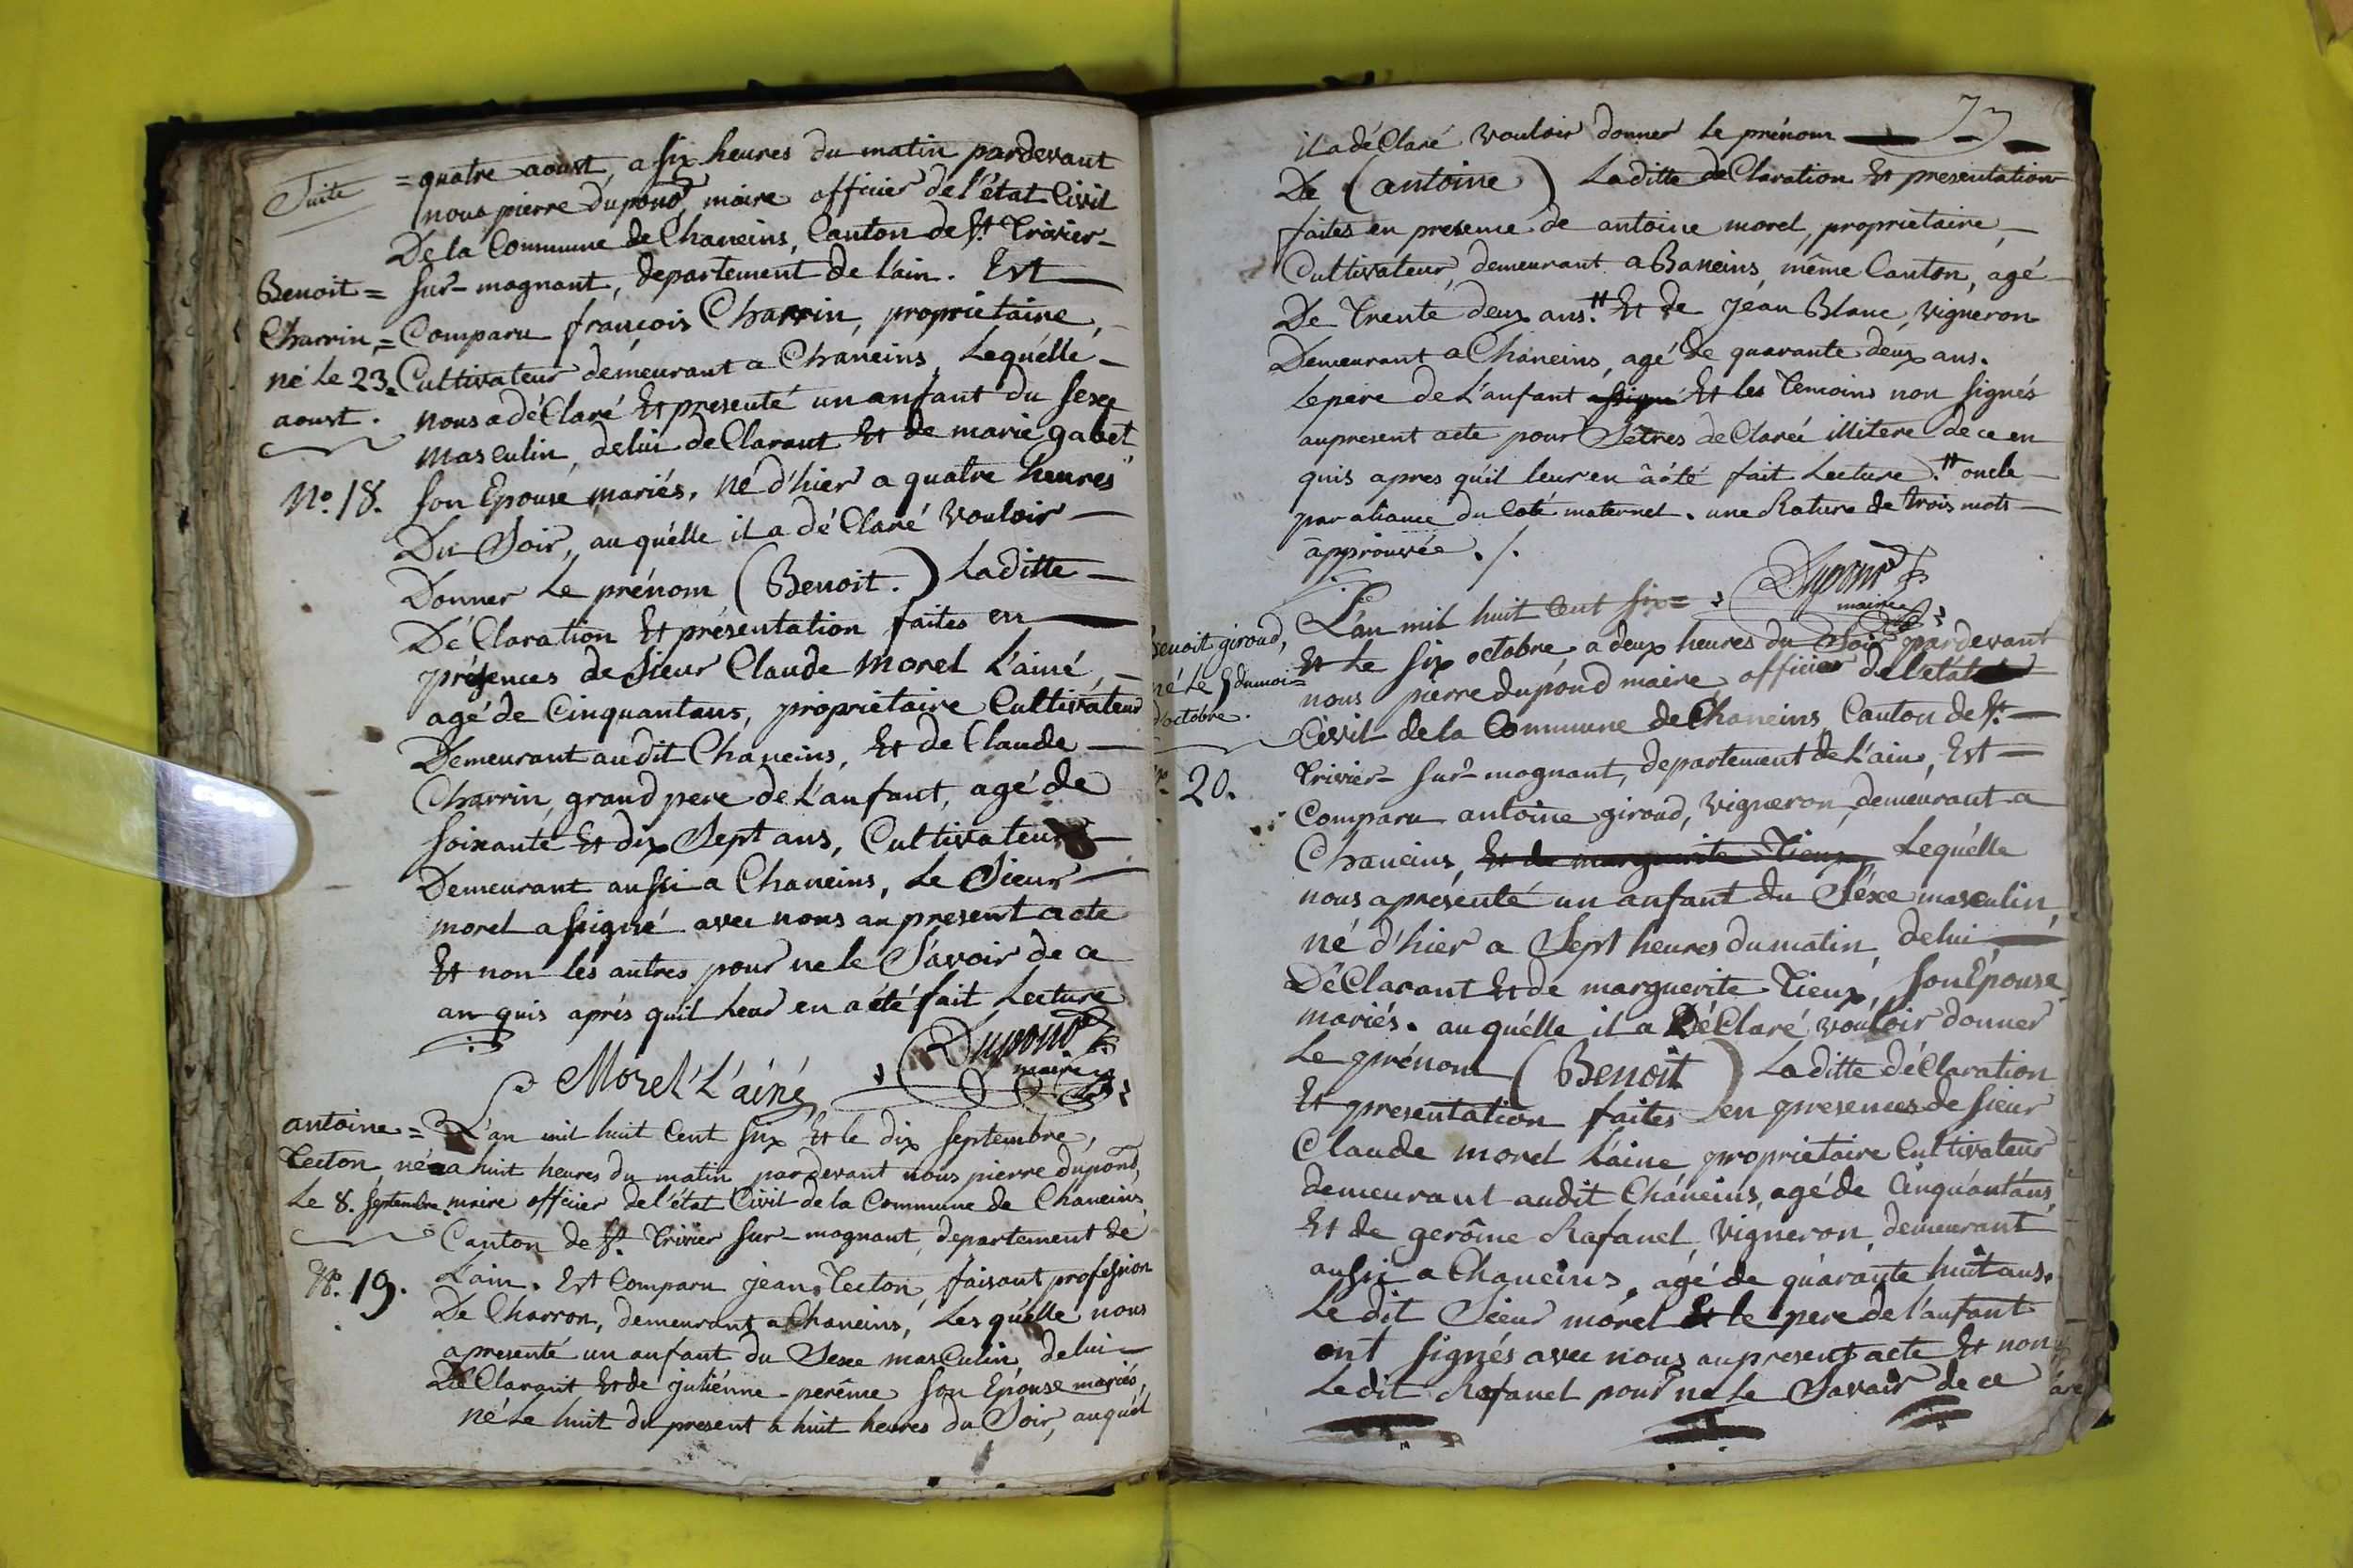 Suite
= quatre aoust, a six heures du matin pardevant
nous pierre dupond maire officier de l'état Civil
De la Commune de Chaneins, Canton de St. Trivier-
Benoit = sur-mognant, departement de l'ain. Est
Charrin, = Comparu françois Charrin, propriétaire,
né le 23. Cultivateur demeurant a Chaneins, Lequélle
aoust. nous a déClaré Et presenté un anfant du sexe
masculin, de lui deClarant Et de marie gabet
No. 18. son Epouse mariés, né d'hier a quatre heures
Du Soir, au quélle il a déClaré vouloir
Donner Le prénom (Benoit.) Laditte
DéClaration Et présentation faites en
présences de Sieur Claude Morel L'ainé,
agé de Cinquantans, propriétaire Cultivateur
Demeurant audit Chaneins, Et de Claude
Charrin, grand pere de L'anfant, agé de
soixante Et dix Sept ans, Cultivateur
Demeurant aussi a Chaneins, Le Sieur
morel a signé avec nous au present acte
Et non les autres pour ne le Savoir de ce
an quis aprés quil leur en a été fait Lecture
Morel L'ainé Dupond
maire
antoine = L'an mil huit Cent six Et le dix septembre,
Tecton, né a huit heures du matin pardevant nous pierre dupond,
Le 8. septembre. maire officier de l'état Civil de la Commune de Chaneins,
Canton de St. Trivier sur-mognant, departement de
No. 19. L'ain. Est Comparu jean Tecton, faisant profession
De Charron, demeurant a Chaneins, Lesquélle nous
a presenté un anfant du Sexe masCulin, de lui
DéClarant Et de juliénne perême son Epouse mariés,
né Le huit du present a huit heures du Soir, auquél
73
il a déClaré vouloir donner Le prénom
De (antoine) Laditte deClaration Et presentation
faites en presence de antoine morel, propriétaire,
Cultivateur, demeurant a Baneins, même Canton, agé
De Trente deux ans." Et de jean Blanc, vigneron
Demeurant a Chaneins, agé de quarante deux ans.
Le pere de L'anfant a signé Et les Temoins non signés
au present acte pour Sêtres deClaréé illitere de ce en
quis apres qu'il leur en à été fait Lecture." oncle
par aliance du Coté maternel. une Rature de trois mots
approuvée ./.
Dupond
maire
L'an mil huit Cent six =
Benoit giroud, Et Le six octobre a deux heures du Soir pardevant
né Le 5 du moi= nous pierre dupond maire officier de l'état
d'octobre. Civil de la Commune de Chaneins Canton de St.
No. 20. Trivier-sur-mognant, departement de L'ain, Est
Comparu antoine giroud, vigneron, demeurant a
Chaneins, Et de marguerite Tieux, Lequélle
nous a présenté un anfant du Séxe masculin,
né d'hier a Sept heures du matin, de lui
DéClarant Et de marguerite Tieux, son Epouse
mariés. au quélle il a DéClaré vouloir donner
Le prénom (Benoit) Laditte déClaration
Et presentation faites en presences de sieur
Claude morel L'aine propriétaire Cultivateur
demeurant audit Chaneins, agé de Cinquantans,
Et de gerôme Rafanel, vigneron, demeurant
aussi a Chaneins, agé de quarante huit ans.
Le dit Sieur morel Et le pere de l'anfant
ont signés avec nous au present acte Et non
Le dit Rafanel pour ne Le Savoir de ce